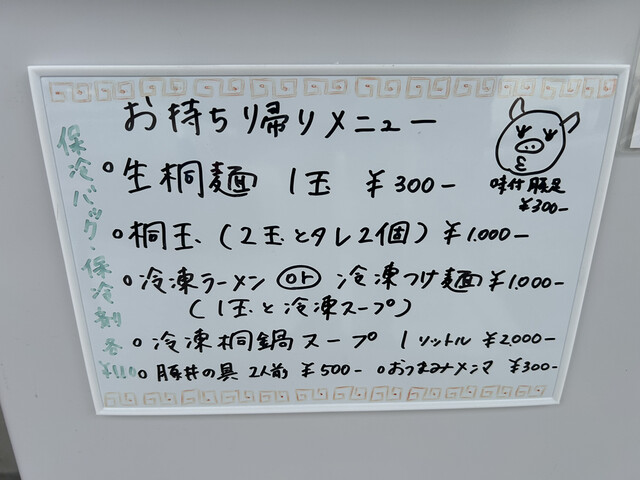 お持ち帰りメニュー
○生桐麺 1玉 ¥300-
○桐玉（2玉とタレ2個）¥1.000-
○冷凍ラーメン or 冷凍つけ麺¥1,000-
（1玉と冷凍スープ）
○冷凍桐鍋スープ 1リットル ¥2,000-
○豚丼の具 2人前 ¥500- ○おつまみメンマ ¥300-
味付豚足
¥300-
保冷バック、保冷剤各
¥110